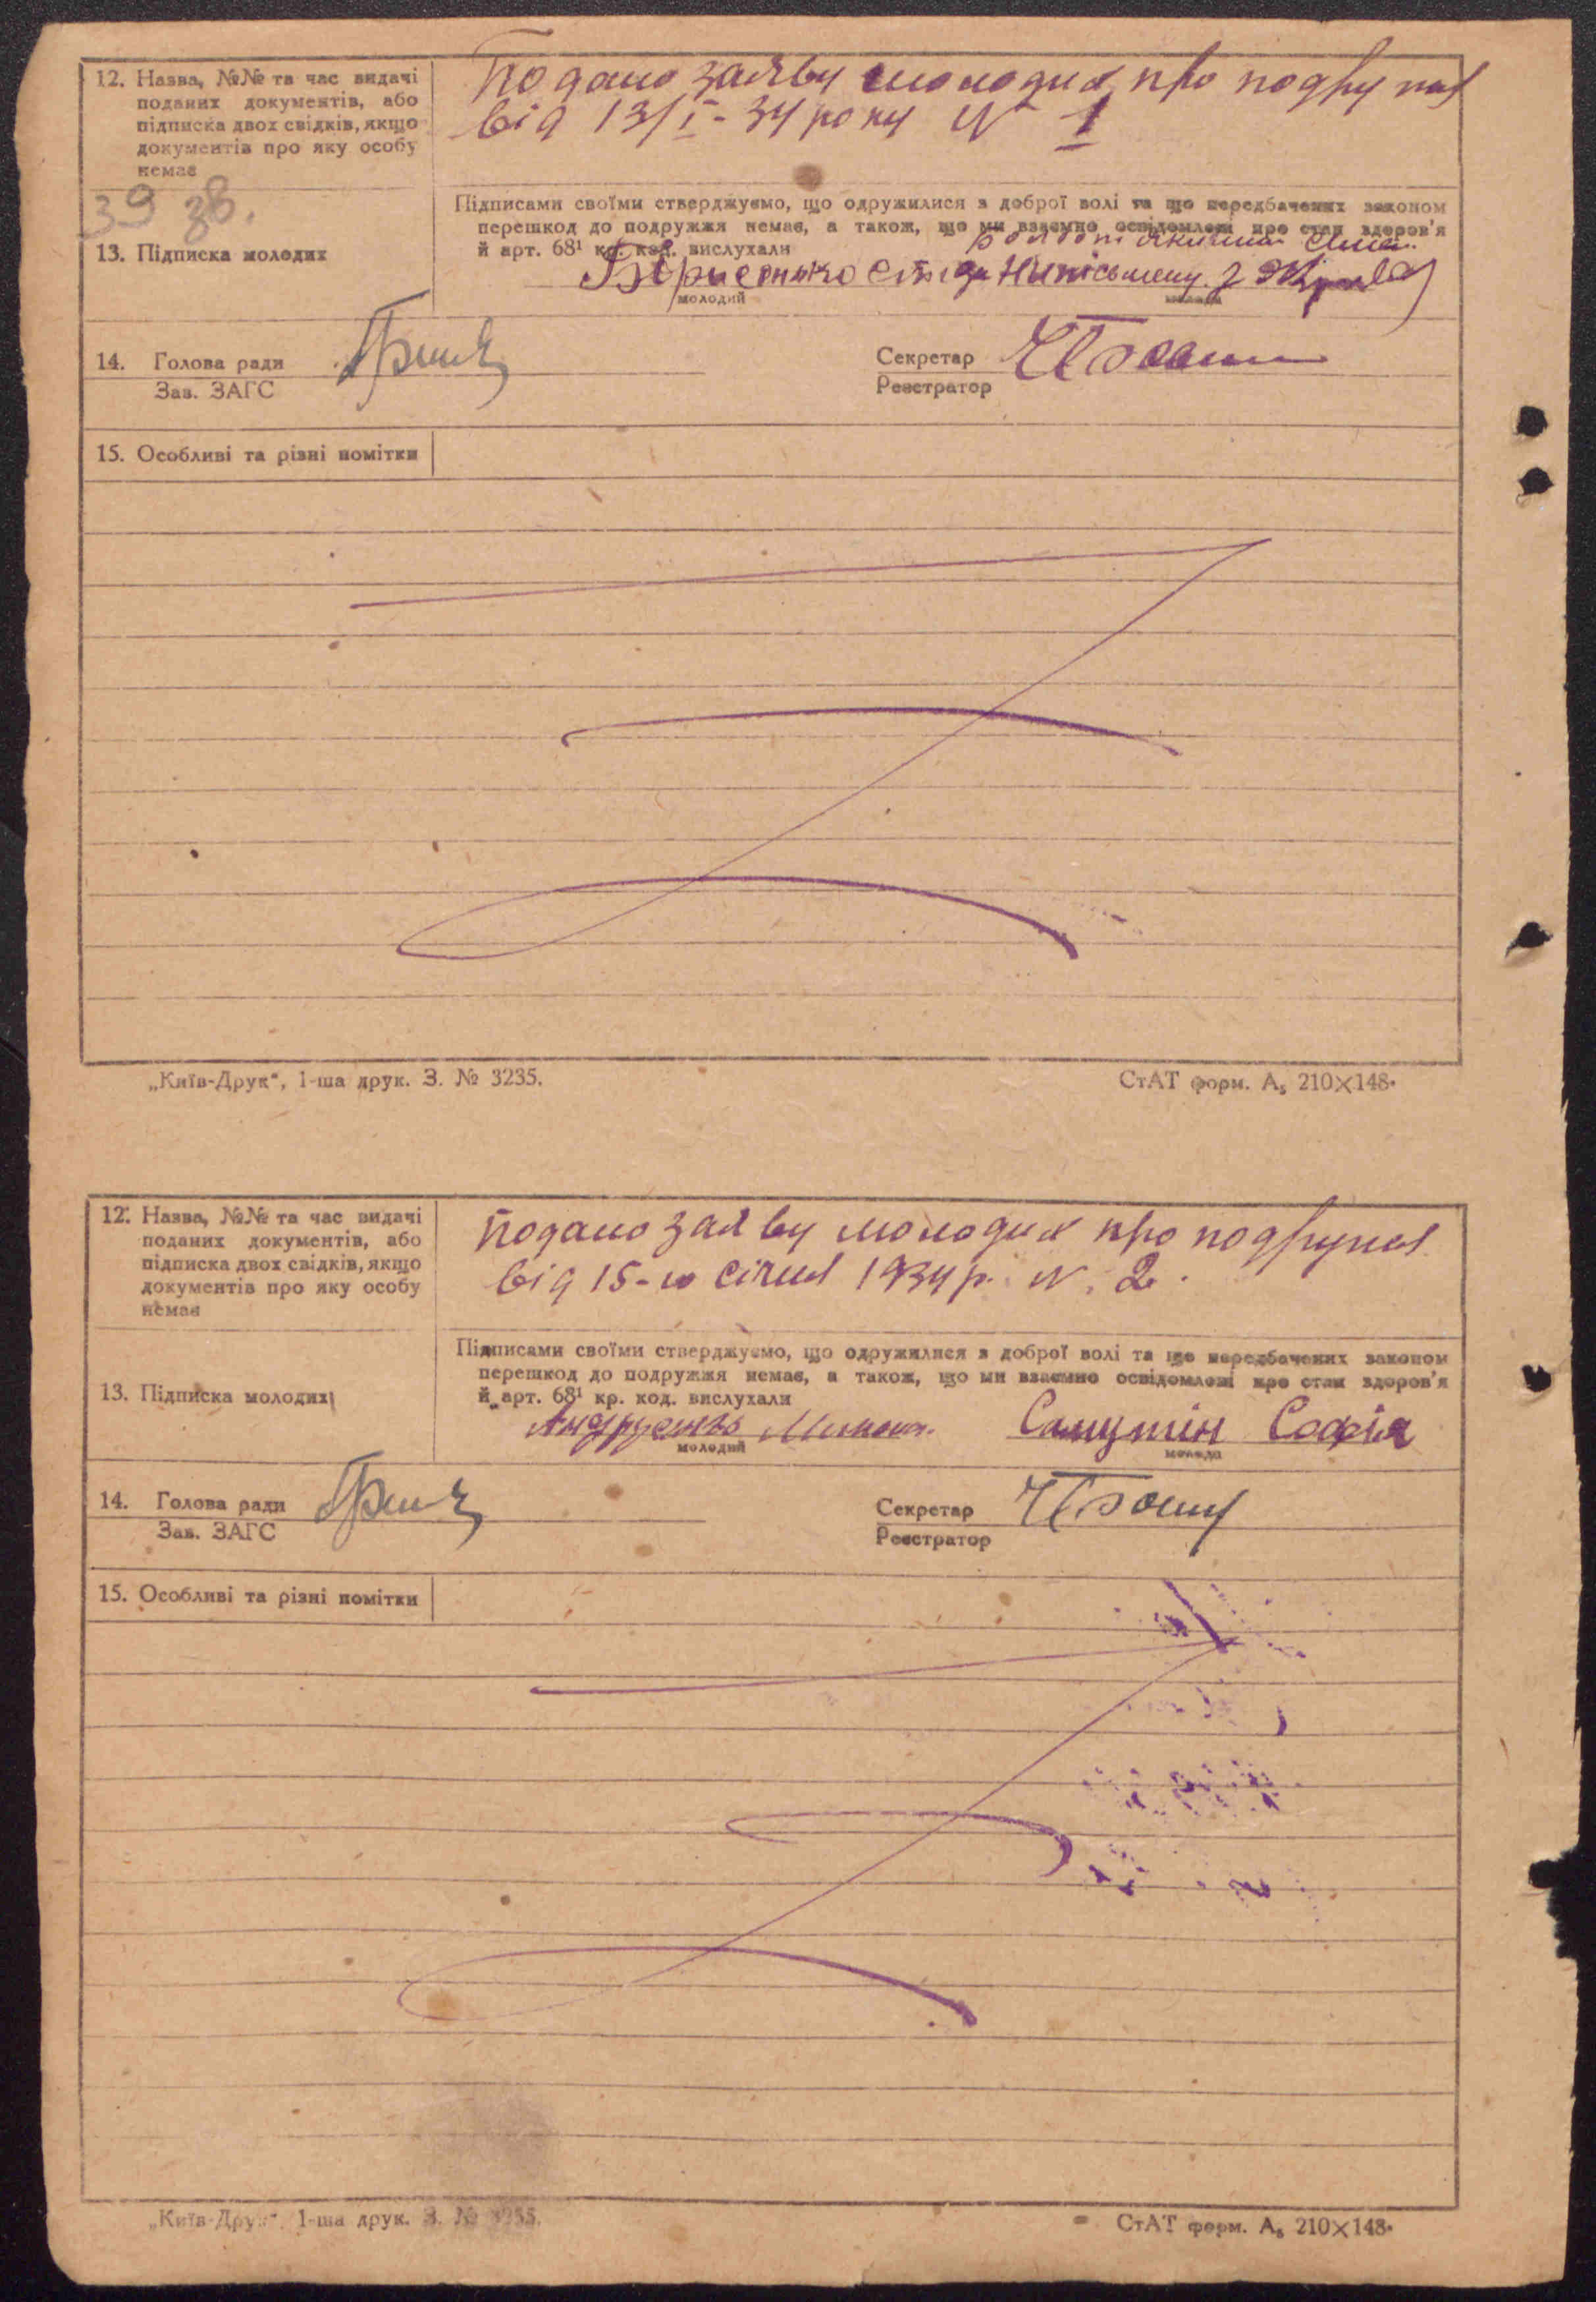 12. Назва, №№ та час видачі
поданих документів, або
підписка двох свідків, якщо
документів про яку особу
немає
Подано заяву молодих про подружжя
від 13/I - 34 року № 1
39 зв.
13. Підписка молодих
Підписами своїми стверджуємо, що одружилися з доброї волі та що передбачених законом
перешкод до подружжя немає, а також, що ми взаємно освідомлені про стан здоров'я
й арт. 68¹ кр. код. вислухали
за Неписьмену
молодий молода
14. Голова ради
Зав. ЗАГС
Секретар
Реєстратор
15. Особливі та різні помітки
„Київ-Друк“, 1-ша друк. З. № 3235.
СтАТ форм. А₅ 210×148.
12. Назва, №№ та час видачі
поданих документів, або
підписка двох свідків, якщо
документів про яку особу
немає
Подано заяву молодих про
від 15-го січня 1934 р. №. 2.
13. Підписка молодих
Підписами своїми стверджуємо, що одружилися з доброї волі та що передбачених законом
перешкод до подружжя немає, а також, що ми взаємно освідомлені про стан здоров'я
й арт. 68¹ кр. код. вислухали
Самутін Софія
молодий молода
14. Голова ради
Зав. ЗАГС
Секретар
Реєстратор
15. Особливі та різні помітки
„Київ-Друк“, 1-ша друк. З. №
СтАТ форм. А₅ 210×148.